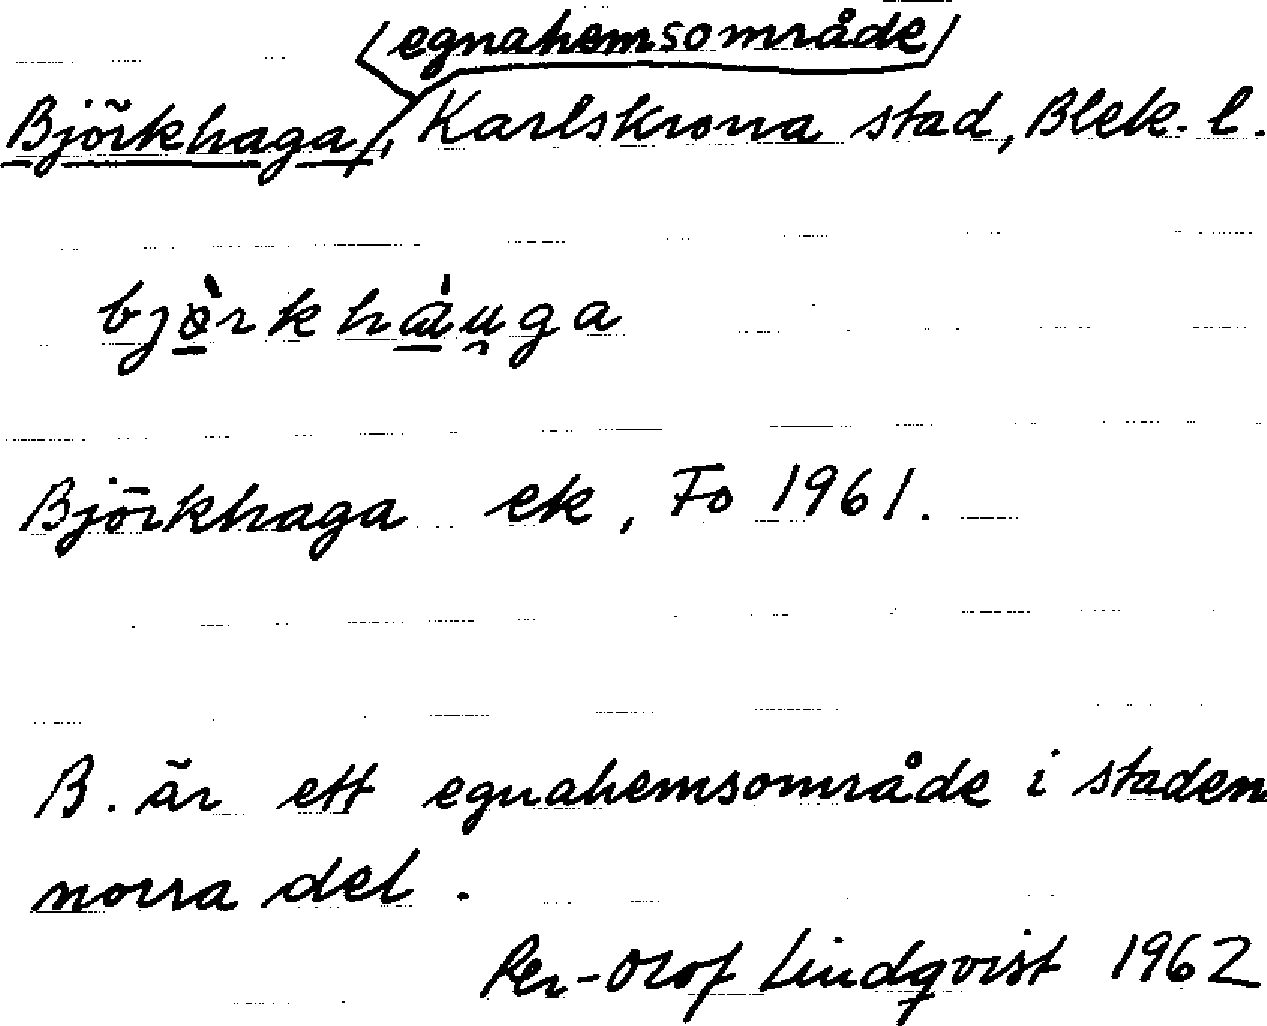 (egnahemsområde)
Björkhaga, Karlskrona stad, Blek. l.
bjö̀rkhàu̯ga
Björkhaga ek, Fo 1961.
B. är ett egnahemsområde i staden
norra del.
Per-Olof Lindqvist 1962